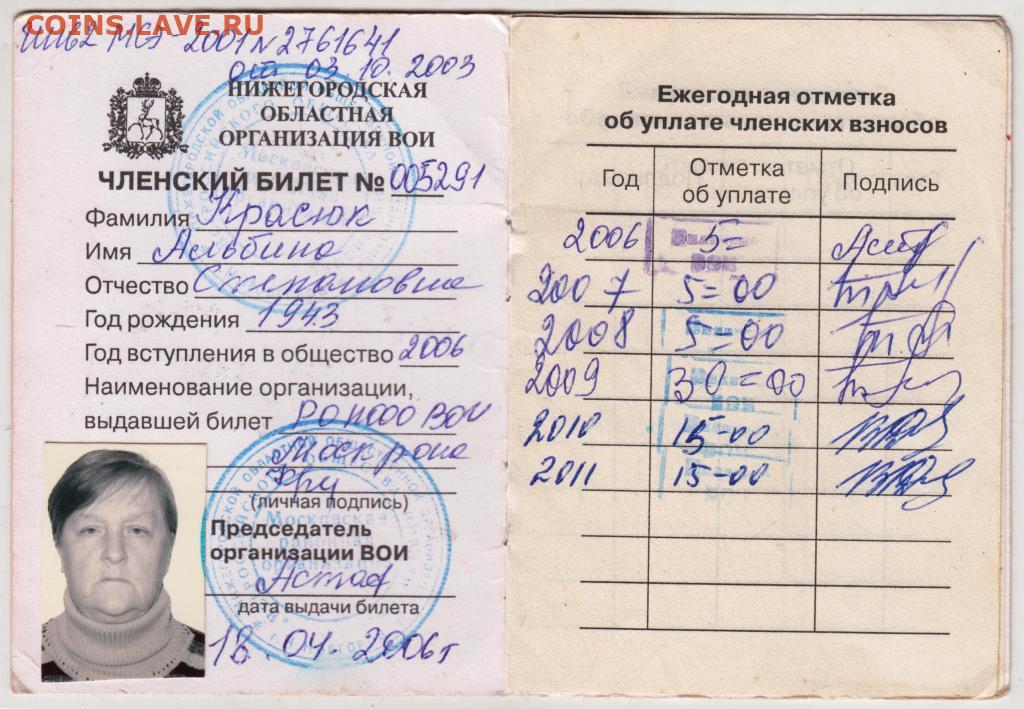 COINS.LAVE.RU
2001 № 2761641
от 03.10.2003
НИЖЕГОРОДСКАЯ
ОБЛАСТНАЯ
ОРГАНИЗАЦИЯ ВОИ
ЧЛЕНСКИЙ БИЛЕТ № 005291
Фамилия Красюк
Имя Альбина
Отчество Степановна
Год рождения 1943
Год вступления в общество 2006
Наименование организации,
выдавшей билет ВОИ
Моск. р-на
(личная подпись)
Председатель
организации ВОИ
Астаф
дата выдачи билета
18.04.2006г
Ежегодная отметка
об уплате членских взносов
Год Отметка об уплате Подпись
2006 5=
2007 5=00
2008 5=00
2009 30=00
2010 15-00
2011 15-00